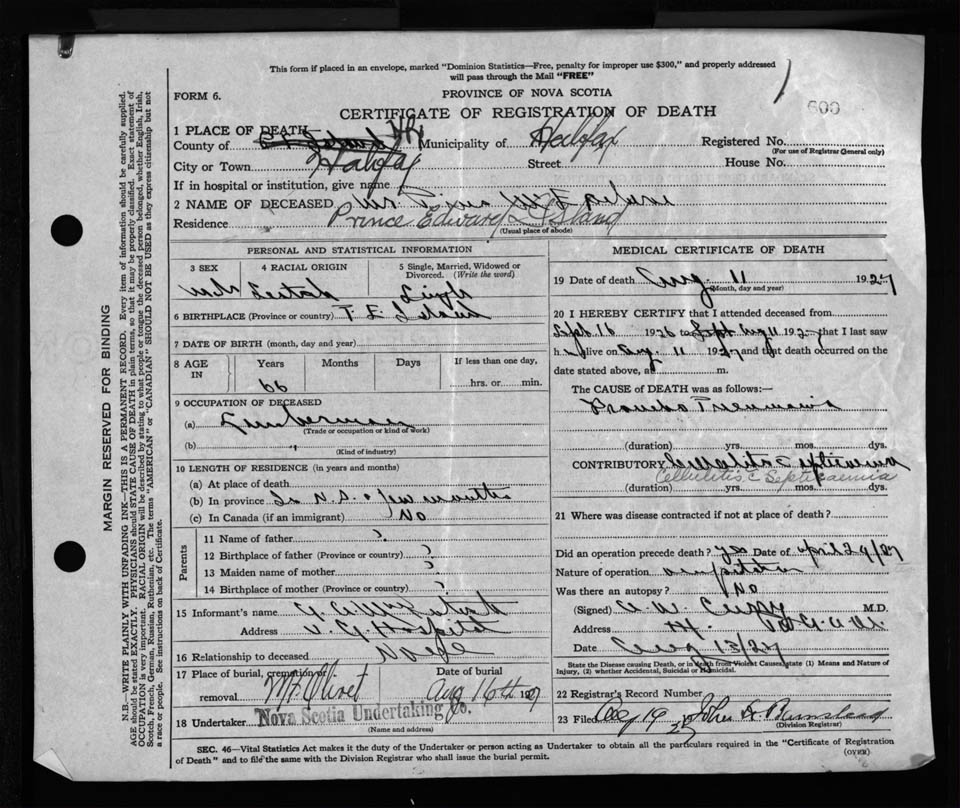 This form if placed in an envelope, marked "Dominion Statistics—Free, penalty for improper use $300," and properly addressed
will pass through the Mail "FREE"
FORM 6.
PROVINCE OF NOVA SCOTIA
600
CERTIFICATE OF REGISTRATION OF DEATH
1 PLACE OF DEATH
County of Hfx Municipality of Halifax Registered No.
(For use of Registrar General only)
City or Town Halifax Street House No.
If in hospital or institution, give name
2 NAME OF DECEASED
Residence Prince Edward Island
(Usual place of abode)
PERSONAL AND STATISTICAL INFORMATION
3 SEX 4 RACIAL ORIGIN 5 Single, Married, Widowed or Divorced. (Write the word)
Single
6 BIRTHPLACE (Province or country)
7 DATE OF BIRTH (month, day and year)
8 AGE IN Years Months Days If less than one day,
66
hrs. or min.
9 OCCUPATION OF DECEASED
(a) Lumberman
(Trade or occupation or kind of work)
(b) "
(Kind of industry)
10 LENGTH OF RESIDENCE (in years and months)
(a) At place of death
(b) In province In N.S. a few months
(c) In Canada (if an immigrant) No
Parents
11 Name of father ?
12 Birthplace of father (Province or country) ?
13 Maiden name of mother ?
14 Birthplace of mother (Province or country) ?
15 Informant's name
Address V. G. Hospital
16 Relationship to deceased None
17 Place of burial, cremation or removal Mt. Olivet
Date of burial Aug 16th 1927
18 Undertaker Nova Scotia Undertaking Co.
(Name and address)
MEDICAL CERTIFICATE OF DEATH
19 Date of death Aug. 11 1927
(Month, day and year)
20 I HEREBY CERTIFY that I attended deceased from
Sept 16 1926 to Aug 11 1927 that I last saw
h alive on Aug. 11 1927 and that death occurred on the
date stated above, at m.
The CAUSE of DEATH was as follows:—
Broncho Pneumonia
(duration) yrs. mos. dys.
CONTRIBUTORY Cellulitis c Septicaemia
Cellulitis c Septicaemia
(duration) yrs. mos. dys.
21 Where was disease contracted if not at place of death?
Did an operation precede death? yes Date of April 29/27
Nature of operation amputation
Was there an autopsy? No
(Signed) M.D.
Address
Date Aug 13/27
State the Disease causing Death, or in death from Violent Causes, state (1) Means and Nature of
Injury, (2) whether Accidental, Suicidal or Homicidal.
22 Registrar's Record Number
23 Filed 19 27
(Division Registrar)
SEC. 46—Vital Statistics Act makes it the duty of the Undertaker or person acting as Undertaker to obtain all the particulars required in the "Certificate of Registration
of Death" and to file the same with the Division Registrar who shall issue the burial permit.
(OVER)
MARGIN RESERVED FOR BINDING
N.B.—WRITE PLAINLY WITH UNFADING INK—THIS IS A PERMANENT RECORD. Every item of information should be carefully supplied.
AGE should be stated EXACTLY. PHYSICIANS should STATE CAUSE OF DEATH in plain terms, so that it may be properly classified. Exact statement of
OCCUPATION is very important. RACIAL ORIGIN will be described by stating to what people or tongue the deceased person belonged, whether English, Irish,
Scotch, French, German, Russian, Ruthenian, etc. The terms "AMERICAN" or "CANADIAN" SHOULD NOT BE USED as they express citizenship but not
a race or people. See instructions on back of Certificate.